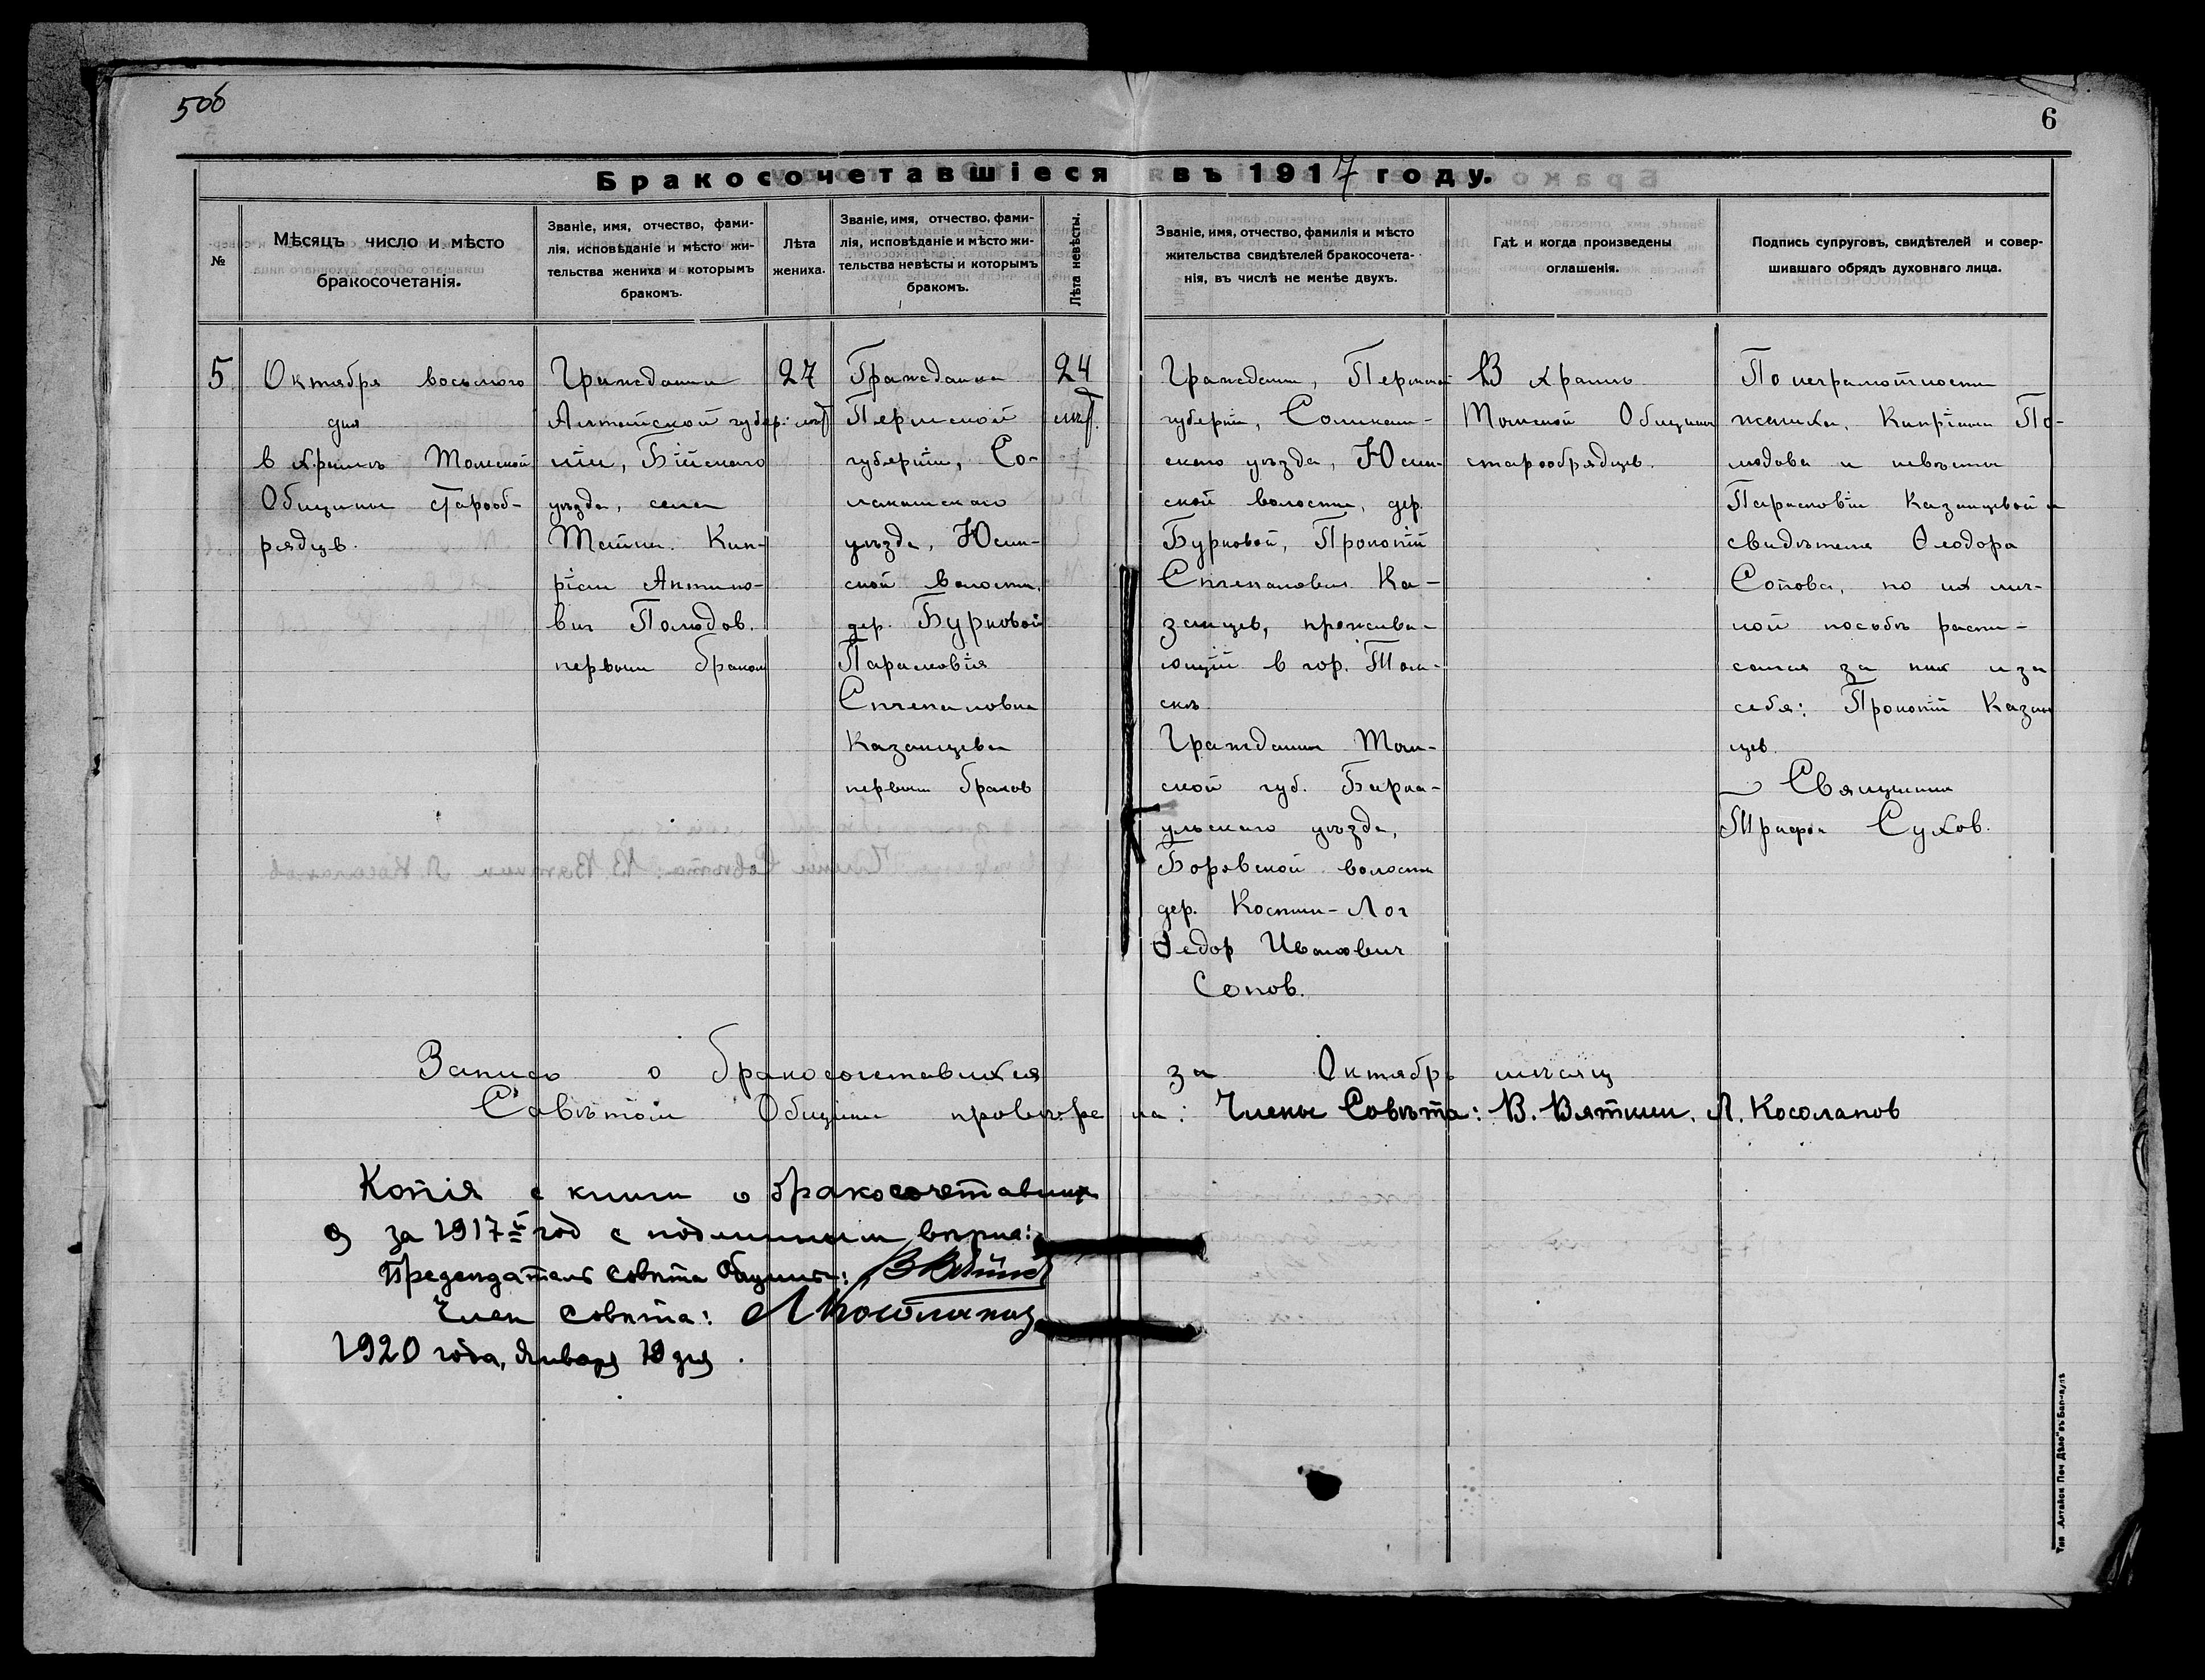 5об
6
Бракосочетавшіеся въ 1917 году.
№
Мѣсяцъ число и мѣсто
бракосочетанія.
Званіе, имя, отчество, фами-
лія, исповѣданіе и мѣсто жи-
тельства жениха и которымъ
бракомъ.
Лѣта
жениха.
Званіе, имя, отчество, фами-
лія, исповѣданіе и мѣсто жи-
тельства невѣсты и которымъ
бракомъ.
Лѣта невѣсты.
Званіе, имя, отчество, фамилія и мѣсто
жительства свидѣтелей бракосочета-
нія, въ числѣ не менѣе двухъ.
Гдѣ и когда произведены
оглашенія.
Подпись супруговъ, свидѣтелей и совер-
шившаго обрядъ духовнаго лица.
5
Октября восьмого
дня
в храмѣ Томской
Общины старооб-
рядцев.
Гражданин
Алтайской губер-
ніи, Бійскаго
уѣзда, села
Тайны. Кип-
ріан Антипо-
вич Полюдов.
первым браком
27
лѣт
Гражданка
Пермской
губерніи, Со-
ликамскаго
уѣзда, Юсь-
ской волости,
дер. Бурковой
Парасковія
Степановна
Казанцева
первым браков
24
лѣт.
Гражданин, Пермской
губерніи, Соликам-
скаго уѣзда, Юсь-
ской волости, дер.
Бурковой, Прокопій
Степанович Ка-
занцев, прожива-
ющій в гор. Том-
скѣ
Гражданин Том-
ской губ. Барна-
ульскаго уѣзда,
Боровской волости
дер. Костин-Лог
Ѳедор Иванович
Сопов.
В храмѣ
Томской Общины
старообрядцев.
По неграмотности
жениха, Кипріана По-
людова и невѣсты
Парасковіи Казанцевой и
свидѣтеля Ѳеодора
Сопова, по их лич-
ной просьбѣ распи-
сался за них и за
себя: Прокопій Казан
цев.
Священник
Трифон Сухов.
Запись о бракосочетавшихся за Октябрь мѣсяц
Совѣтом Общины провѣрена: Члены Совѣта: В. Вяткин. Л. Косолапов
Копія с книги о бракосочетавших
ся за 1917й год с подлинным вѣрна:
Председатель совѣта Общины: В Вяткин
Член совѣта: Л Косолапов
1920 года, Января 19 дня.
Тип „Алтайск Печ Дѣло" въ Барнаулѣ